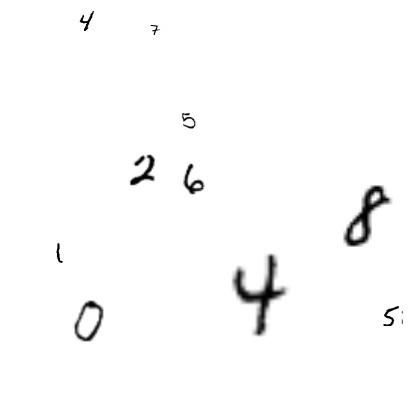 4 7
5
2 6
8
1
4
0 5